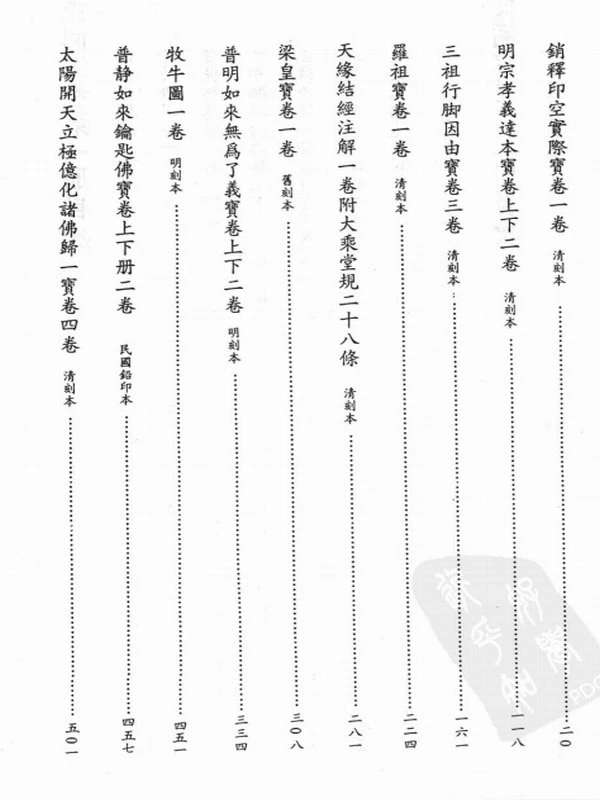 銷釋印空實際寶卷一卷 清刻本 二〇
明宗孝義達本寶卷上下二卷 清刻本 一一八
三祖行脚因由寶卷三卷 清刻本 一六一
羅祖寶卷一卷 清刻本 二二四
天緣結經注解一卷附大乘堂規二十八條 清刻本 二八一
梁皇寶卷一卷 舊刻本 三〇八
普明如來無爲了義寶卷上下二卷 明刻本 三三四
牧牛圖一卷 明刻本 四五一
普靜如來鑰匙佛寶卷上下册二卷 民國鉛印本 四五七
太陽開天立極億化諸佛歸一寶卷四卷 清刻本 五〇一
PDG